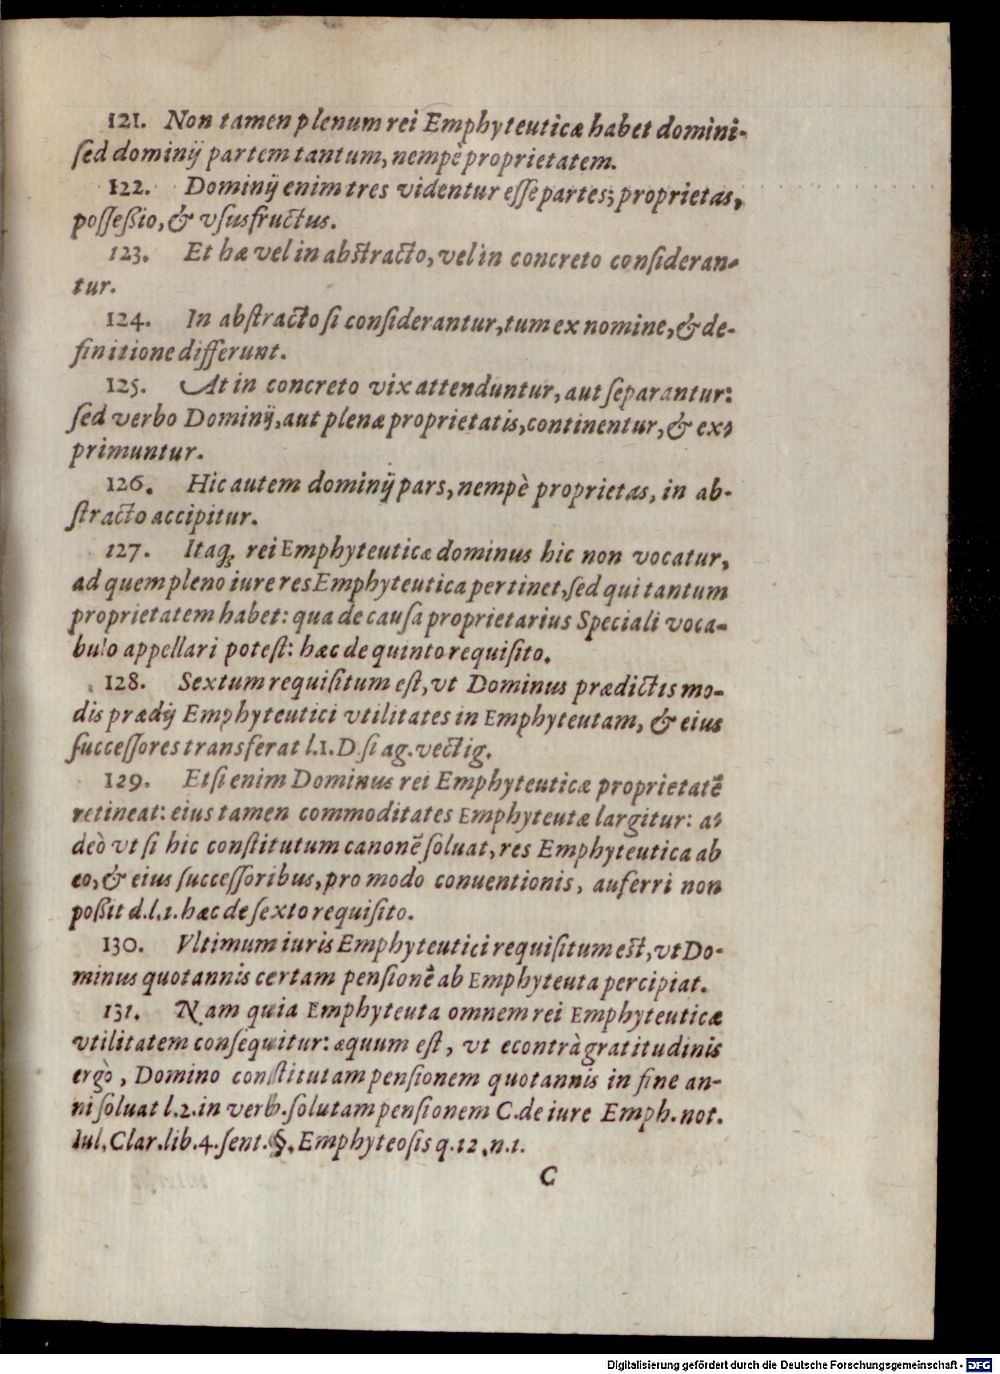 121. Non tamen plenum rei Emphyteuticæ habet domini-
ſed dominij partem tantum, nempè proprietatem.
122. Dominij enim tres videntur eſſe partes; proprietas,
poſſeßio, & vſusfructus.
123. Et hæ vel in abſtracto, vel in concreto conſideran-
tur.
124. In abſtracto ſi conſiderantur, tum ex nomine, & de-
finitione differunt.
125. At in concreto vix attenduntur, aut ſeparantur:
ſed verbo Dominij, aut plenæ proprietatis, continentur, & ex-
primuntur.
126. Hic autem dominij pars, nempè proprietas, in ab-
ſtracto accipitur.
127. Itaq; rei Emphyteuticæ dominus hic non vocatur,
ad quem pleno iure res Emphyteutica pertinet, ſed qui tantum
proprietatem habet: qua de cauſa proprietarius Speciali voca-
bulo appellari poteſt: hæc de quinto requiſito.
128. Sextum requiſitum eſt, vt Dominus prædictis mo-
dis prædij Emphyteutici vtilitates in Emphyteutam, & eius
ſucceſſores transferat l.1. D. ſi ag. vectig.
129. Etſi enim Dominus rei Emphyteuticæ proprietatē
retineat: eius tamen commoditates Emphyteutæ largitur: a-
deò vt ſi hic conſtitutum canonē ſoluat, res Emphyteutica ab
eo, & eius ſucceſſoribus, pro modo conuentionis, auferri non
poßit d.l.1. hæc de ſexto requiſito.
130. Vltimum iuris Emphyteutici requiſitum eſt, vt Do-
minus quotannis certam penſionē ab Emphyteuta percipiat.
131. Nam quia Emphyteuta omnem rei Emphyteuticæ
vtilitatem conſequitur: æquum eſt, vt econtrà gratitudinis
ergò, Domino conſtitutam penſionem quotannis in fine an-
ni ſoluat l.2. in verb. ſolutam penſionem C. de iure Emph. not.
Iul. Clar. lib. 4. ſent. §. Emphyteoſis q. 12. n. 1.
C
Digitalisierung gefördert durch die Deutsche Forschungsgemeinschaft - DFG